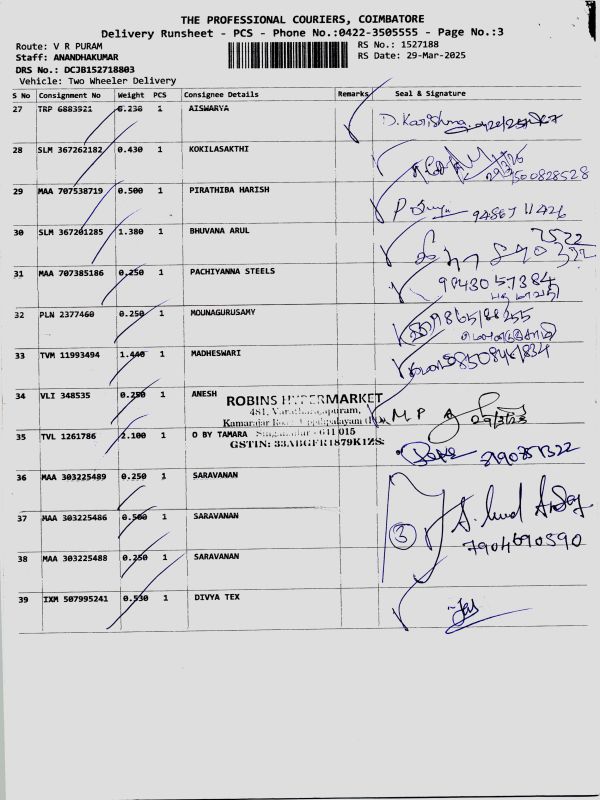 THE PROFESSIONAL COURIERS, COIMBATORE
Delivery Runsheet - PCS - Phone No.:0422-3505555 - Page No.:3
Route: V R PURAM
RS No.: 1527188
Staff: ANANDHAKUMAR
RS Date: 29-Mar-2025
DRS No.: DCJB152718803
Vehicle: Two Wheeler Delivery
S No Consignment No Weight PCS Consignee Details Remarks Seal & Signature
27 TRP 6883921 0.230 1 AISWARYA
D. Karishma
28 SLM 367262182 0.430 1 KOKILASAKTHI
29 MAA 707538719 0.500 1 PIRATHIBA HARISH
94867 11426
30 SLM 367201285 1.380 1 BHUVANA ARUL
31 MAA 707385186 0.250 1 PACHIYANNA STEELS
98430 57384
32 PLN 2377460 0.250 1 MOUNAGURUSAMY
33 TVM 11993494 1.440 1 MADHESWARI
34 VLI 348535 0.250 1 ANESH
ROBINS HYPERMARKET
481, Varatharajapuram,
Kamarajar Road, Uppilipalayam
M P
35 TVL 1261786 2.100 1 O BY TAMARA
Singanallur - 641 015
GSTIN: 33ABGFR1879K1ZS
36 MAA 303225489 0.250 1 SARAVANAN
37 MAA 303225486 0.500 1 SARAVANAN
3
7904690590
38 MAA 303225488 0.250 1 SARAVANAN
39 IXM 507995241 0.530 1 DIVYA TEX